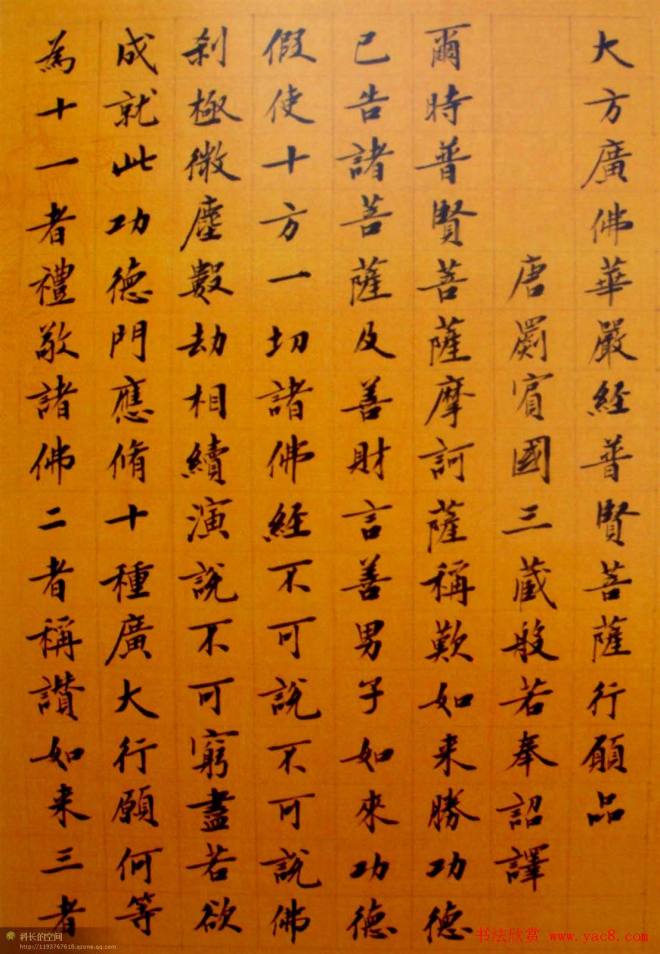 大方廣佛華嚴經普賢菩薩行願品
唐罽賓國三藏般若奉詔譯
爾時普賢菩薩摩訶薩稱歎如来勝功德
已告諸菩薩及善財言善男子如來功德
假使十方一切諸佛經不可說不可說佛
刹極微塵數劫相續演說不可窮盡若欲
成就此功德門應脩十種廣大行願何等
為十一者禮敬諸佛二者稱讚如来三者
科长的空间
http://1193767618.qzone.qq.com
书法欣赏 www.yac8.com